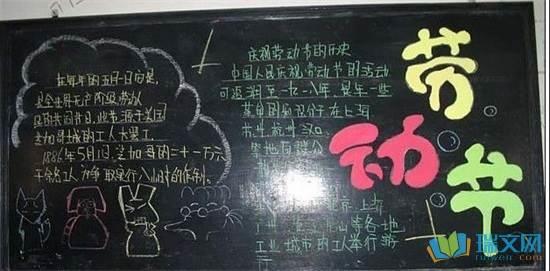 在每年的五月一日它是
是全世界无产阶级劳动人
民的共同节日,此节源于美国
芝加哥城的工人大罢工
1886年5月1日,芝加哥的二十一万六
千余名工人为争取实行八小时工作制,
庆祝劳动节的历史
中国人民庆祝劳动节的活动
可追溯至一九一八年,是年一些
革命的知识份子在上海
苏州 杭州 汉口
等地向群众
北京 上海
广州 等各地
工业城市的工人举行游
劳
动
节
瑞文网
ruiwen.com